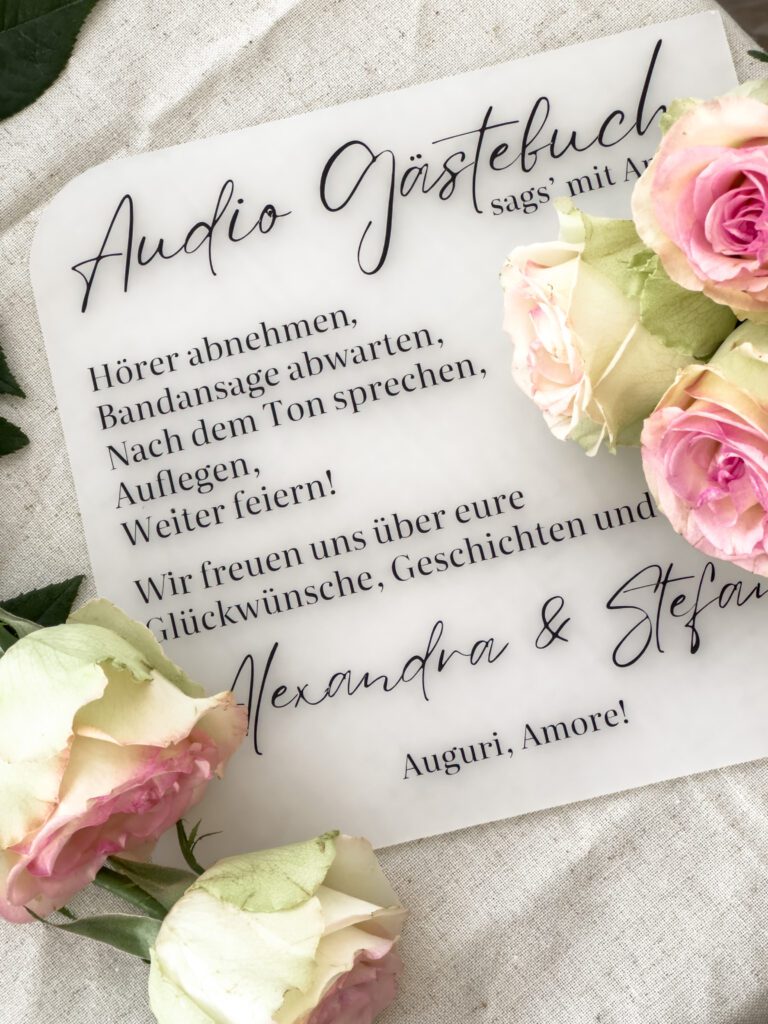 Audio Gästebuch
sags' mit
Hörer abnehmen,
Bandansage abwarten,
Nach dem Ton sprechen,
Auflegen,
Weiter feiern!
Wir freuen uns über eure
Glückwünsche, Geschichten und
Alexandra &
Auguri, Amore!